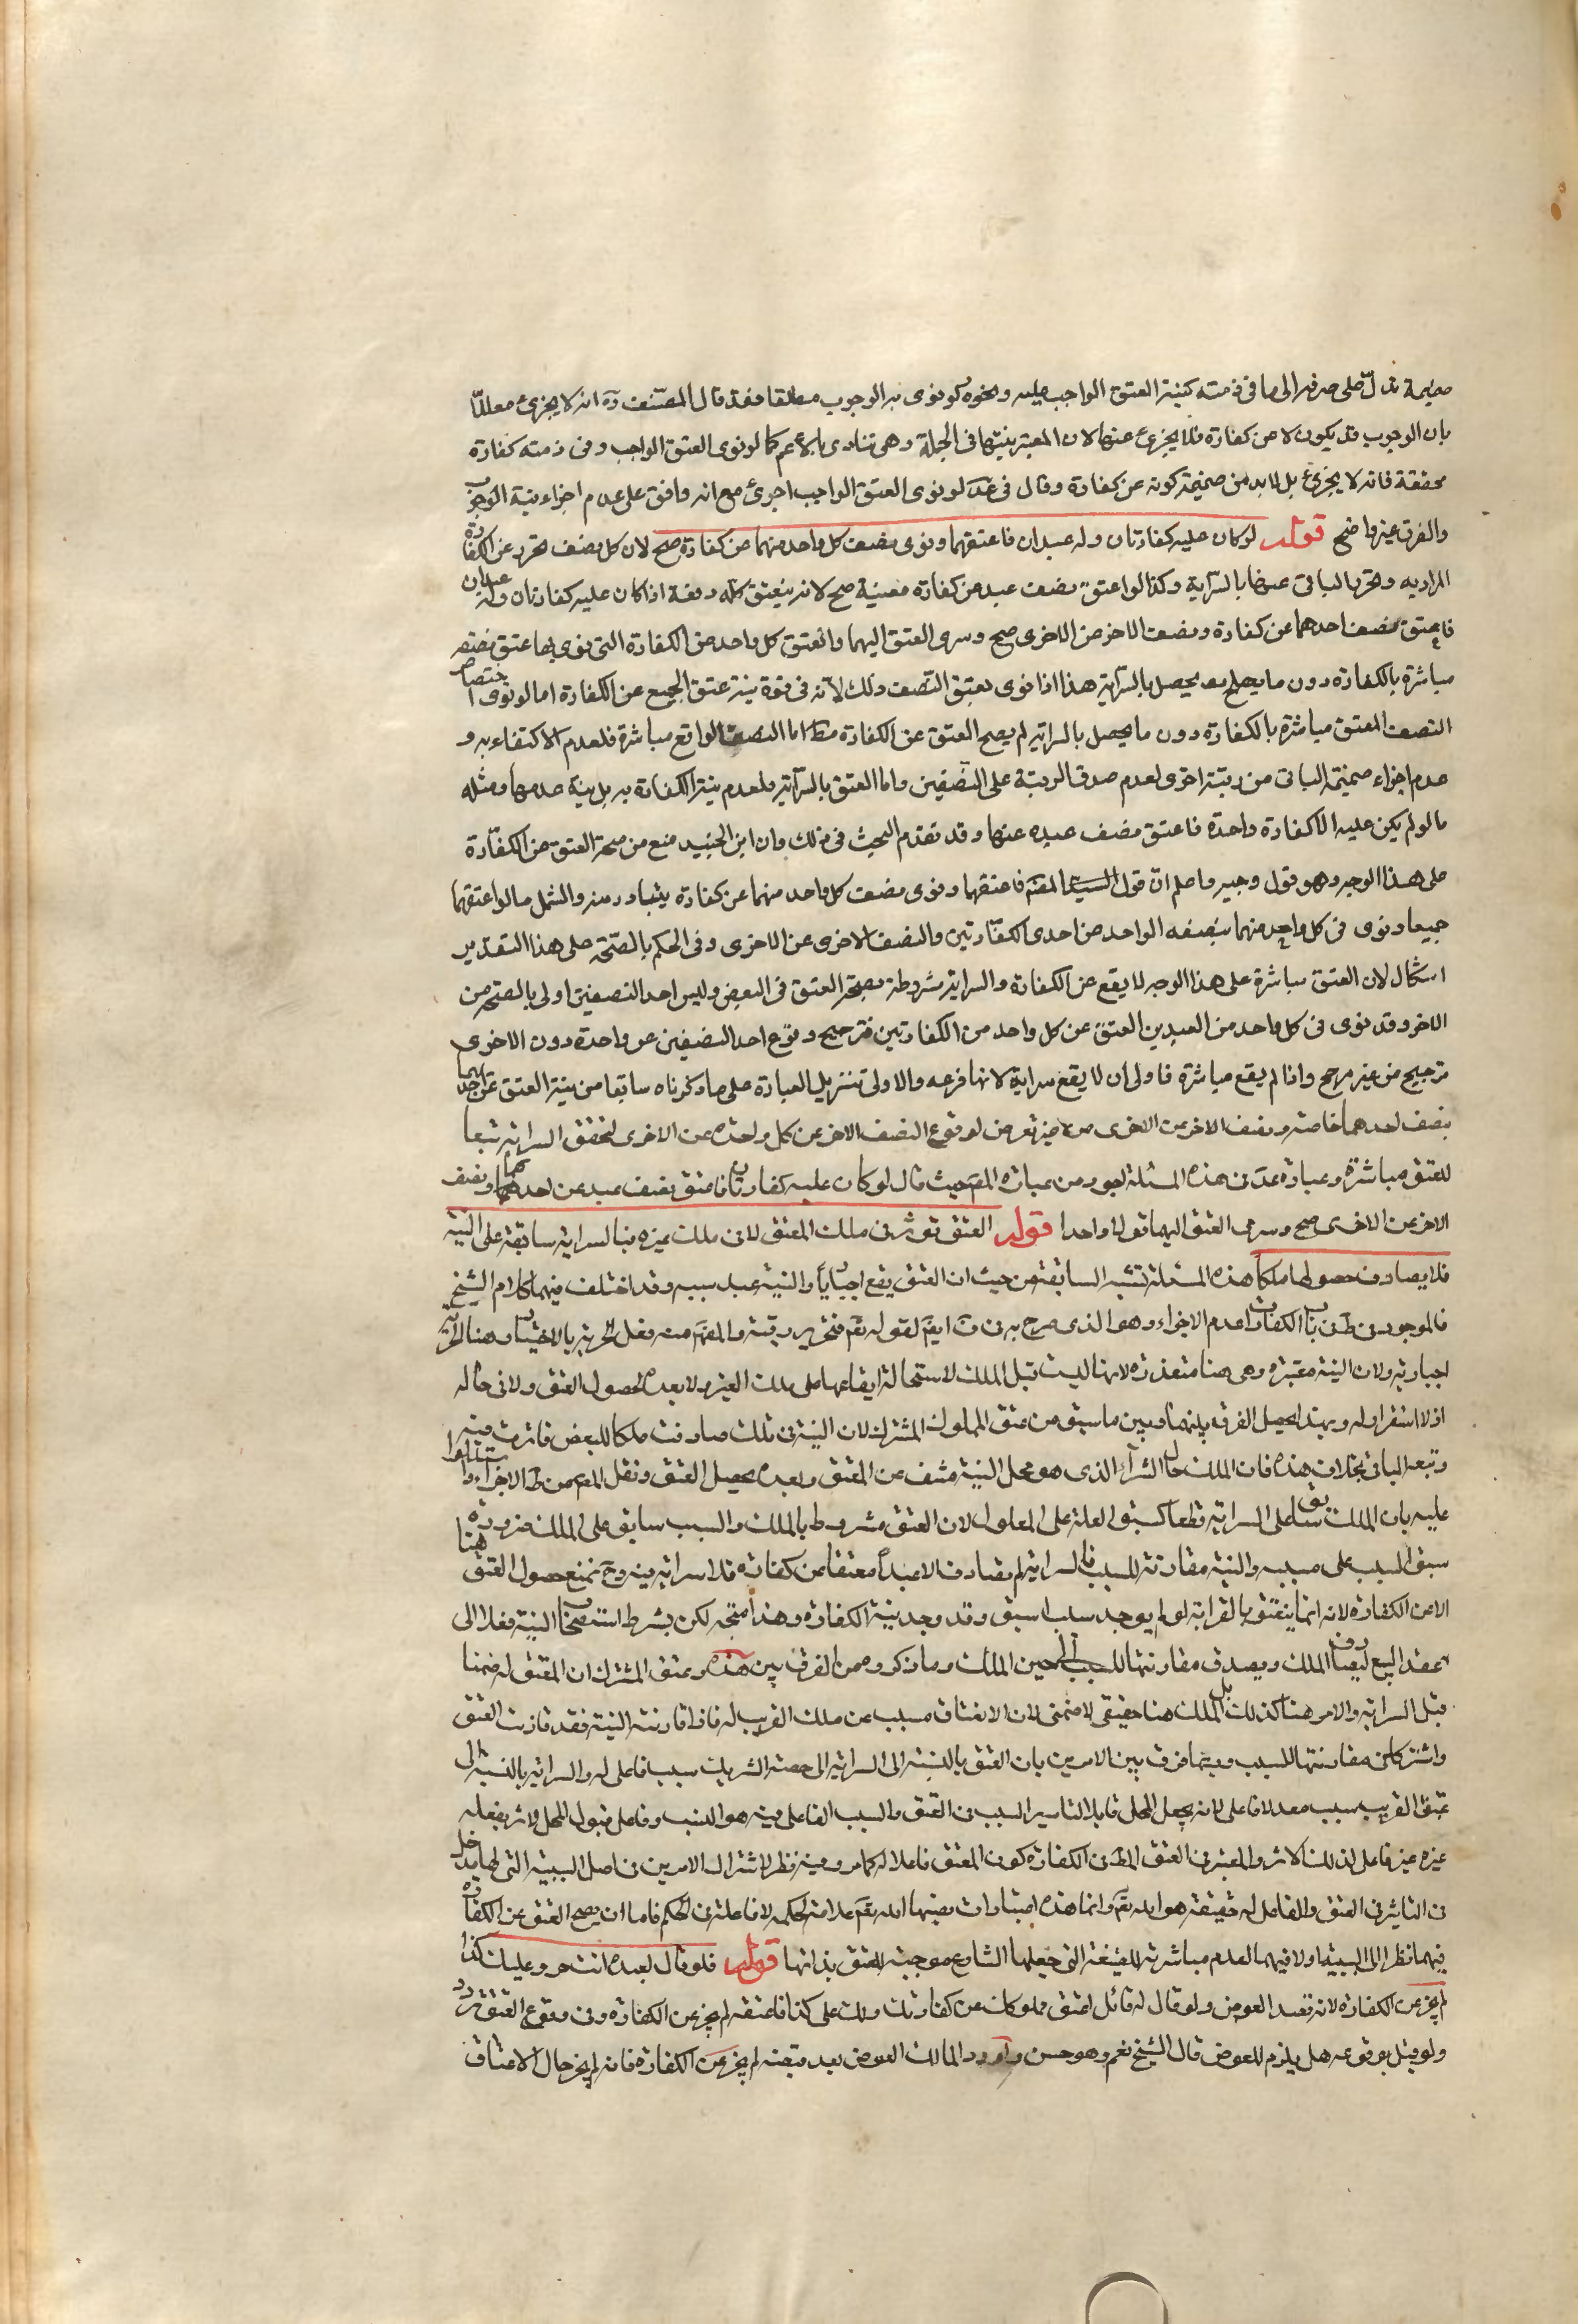 ضميمة تدل على صرفه الى ما في ذمته كنية العتق الواجب عليه ونحوه كونوى به الوجوب مطلقا فقد قال المصنف ره انه لا يجزئ معللا
بان الوجوب قد يكون لا عن كفارة فلا يجزئ عنها لان المعتبر نيتها في الجملة وهي تتادى بالاعم كما لو نوى العتق الواجب وفي ذمته كفارة
محققة فانه لا يجزئ بل لا بد من ضميمة كونه عن كفارة وقال في عد لو نوى العتق الواجب اجزئ مع انه وافق على عدم اجزاء نية الوجوب
والفرق غير واضح قوله لو كان عليه كفارتان وله عبدان فاعتقهما ونوى نصف كل واحد منهما عن كفارة صح لان كل نصف تحرر عن الكفارة
المراد به وتحرر الباقي عنها بالسراية وكذا لو اعتق نصف عبد عن كفارة معينة صح لانه ينعتق كله دفعة اذا كان عليه كفارتان وله عبدان
فاعتق نصف احدهما عن كفارة ونصف الاخر عن الاخرى صح وسرى العتق اليهما وانعتق كل واحد عن الكفارة التي نوى بها عتق نصفه
مباشرة بالكفارة دون ما يحصل بالسراية هذا اذا نوى بعتق النصف ذلك لانه في قوة نية عتق الجميع عن الكفارة اما لو نوى اختصاص
النصف المعتق مباشرة بالكفارة دون ما يحصل بالسراية لم يصح العتق عن الكفارة مطا اما النصف الواقع مباشرة فلعدم الاكتفاء به و
عدم اجزاء ضميمة الباقي من رقبة اخرى لعدم صدق الرقبة على النصفين واما العتق بالسراية فلعدم نية الكفارة به بل نية عدمها ومثله
ما لو لم يكن عليه الا كفارة واحدة فاعتق نصف عبده عنها وقد تقدم البحث في ذلك وان ابن الجنيد منع من صحة العتق عن الكفارة
على هذا الوجه وهو قول وجيه واعلم ان قول المصَ فاعتقهما ونوى نصف كل واحد منهما عن كفارة يتبادر منه والشمل ما لو اعتقهما
جميعا ونوى في كل واحد منهما بنصفه الواحد عن احدى الكفارتين والنصف الاخرى عن الاخرى وفي الحكم بالصحة على هذا التقدير
اشكال لان العتق مباشرة على هذا الوجه لا يقع عن الكفارة والسراية مشروطة بصحة العتق في البعض وليس احد النصفين اولى بالصحة من
الاخر وقد نوى في كل واحد من العبدين العتق عن كل واحد من الكفارتين فترجيح وقوع احد النصفين عن واحدة دون الاخرى
ترجيح من غير مرجح واذا لم يقع مباشرة فاولى ان لا يقع سراية لانها فرعه والاولى تنزيل العبارة على ما ذكرناه سابقا من نية العتق عن احدهما
بنصف احدهما خاصة ونصف الاخر عن الاخرى من غير تعرض لوقوع النصف الاخر عن كل واحدة عن الاخرى لتحقق السراية تبعا
للعتق مباشرة وعبارة عد في هذه المسئلة اجود من عبارة المصَ حيث قال لو كان عليه كفارتان فاعتق نصف عبد عن احدهما ونصف
الاخر عن الاخرى صح وسرى العتق اليهما قولا واحدا قوله العتق توثر في ملك المعتق لا في ملك غيره فبالسراية سابقة على النية
فلا يصادف حصولها ملكا هذه المسئلة تشبه السابقة من حيث ان العتق يقع اجباريا والنية عند سببه وقد اختلف فيهما كلام الشيخ
فالموجود في ط في باب الكفارات عدم الاجزاء وهو الذي صرح به في ف ايضَ لقوله تعَ فتحرير رقبة والمفهم منه فعل الحرية بالاختيار وهنا الحرية
اجبارية ولان النية معتبرة وهي هنا متعذرة لانها ليست قبل الملك لاستحالة ايقاعها على ملك الغير ولا بعده لحصول العتق ولا في حاله
اذ لا استقرار له وبهذا يحصل الفرق بينهما وبين ما سبق من عتق المملوك المشترك لان النية في تلك صادفت ملكا للبعض فاثرت فيه
وتبعه الباقي بخلاف هذه فان الملك حال الشراء الذي هو محل النية منتف عن المعتق وبعده يحصل العتق ونقل المصَ عن ط الاجزاء واستدلوا
عليه بان الملك سابق على السراية قطعا كسبق العلة على المعلول لان العتق مشروط بالملك والسبب سابق على الملك ضرورة
سبق السبب على مسببه والنية مقارنة للسبب فالسراية لم تصادف الا عبدا معتقا عن كفارة فلا سراية هنا وح نمنع حصول العتق
الا عن الكفارة لانه انما ينعتق بالقرابة لو لم يوجد سبب اسبق وقد وجد نية الكفارة وهذا متجه لكن بشرط استصحاب النية فعلا الى
عقد البيع ليصادف الملك ويصدق مقارنتها للسبب الى حين الملك وما ذكروه من الفرق بين هذه وعتق المشترك ان المعتق له ضمنا
قبل السراية والامر هنا كذلك بل الملك هنا حقيقي لا ضمني لان الانعتاق مسبب عن ملك القريب له فاذا قارنته النية فقد قارنت العتق
واشتركا في مقارنتها للسبب وربما فرق بين الامرين بان العتق بالنسبة الى السراية الى حصة الشريك سبب فاعلى له والسراية بالنسبة الى
عتق القريب سبب معد لا فاعلى لانه يجعل المحل قابلا لتاثير السبب في العتق والسبب الفاعلى فيه هو النسب وفاعل قبول المحل لاثر يفعله
غيره غير فاعل لذلك الاثر والمعتبر في العتق المط في الكفارة كون المعتق فاعلا له كما مر وفيه نظر لاشتراك الامرين في اصل السببية التي لها مدخل
في التاثير في العتق والفاعل له حقيقة هو الله تعَ وانما هذه اعتبارات نصبها الله تعَ علامة للحكم لا فاعلة في الحكم فاما ان يصح العتق عن الكفارة
فيهما نظرا الى السببية او لا فيهما لعدم مباشرته للصيغة التي جعلها الشارع موجبة للعتق بذاتها قوله فلو قال لعبده انت حر وعليك كذا
لم يجز عن الكفارة لانه قصد العوض ولو قال له قائل اعتق مملوكك عن كفارتك ولك على كذا فاعتقه لم يجز عن الكفارة وفي وقوع العتق تردد
ولو قيل بوقوعه هل يلزم للعوض قال الشيخ نعم وهو حسن ولو رد المالك العوض بعد قبضه لم يجز عن الكفارة فانه لم يجز حال الاعتاق